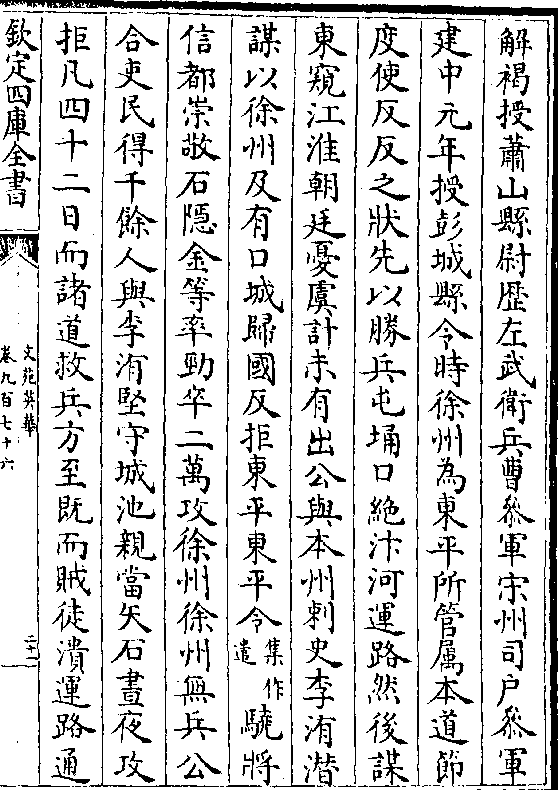 解褐授蕭山縣尉歴左武衛兵曹叅軍宋州司户叅軍
建中元年授彭城縣令時徐州為東平所管属本道節
度使反反之狀先以勝兵屯埇口絶汴河運路然後謀
東窺江淮朝廷憂虞計未有出公與本州刺史李洧潜
謀以徐州及有口城歸國反拒東平東平令集作遣驍將
信都崇敬石隠金等率勁卒二萬攻徐州徐州無兵公
合吏民得千餘人與李洧堅守城池親當矢石晝夜攻
拒凡四十二日而諸道救兵方至既而賊徒潰運路通
欽定四庫全書
文苑英華
卷九百七十六
二十一